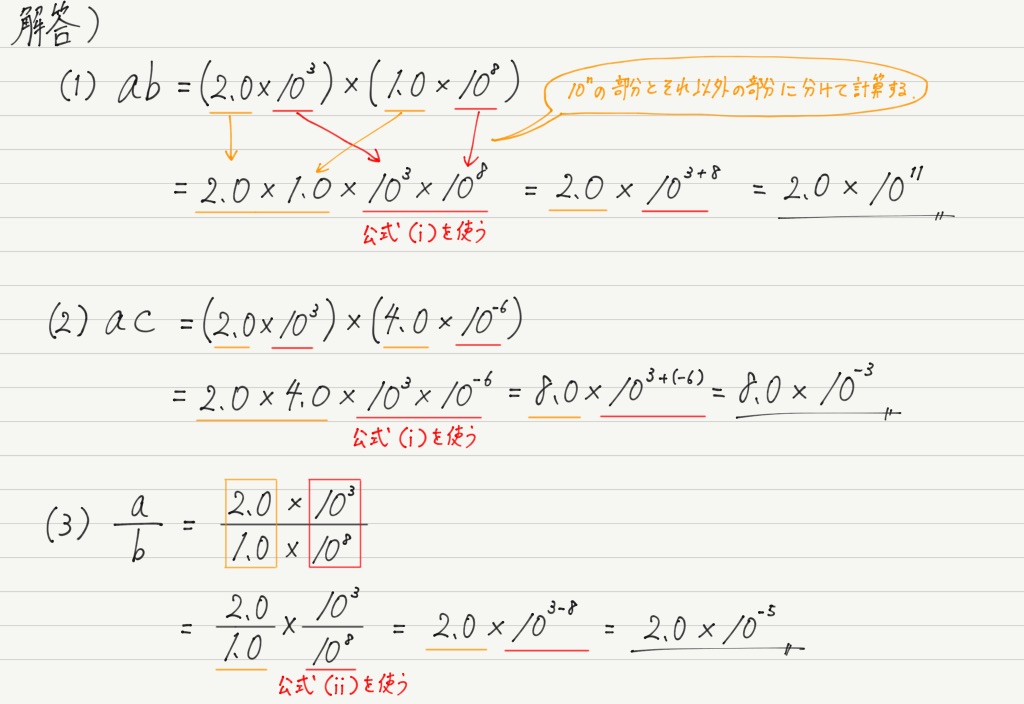 解答)
(1) ab = (2.0 × 10³) × (1.0 × 10⁸)
10ⁿの部分とそれ以外の部分に分けて計算する.
= 2.0 × 1.0 × 10³ × 10⁸ = 2.0 × 10³⁺⁸ = 2.0 × 10¹¹
公式(i)を使う
(2) ac = (2.0 × 10³) × (4.0 × 10⁻⁶)
= 2.0 × 4.0 × 10³ × 10⁻⁶ = 8.0 × 10³⁺⁽⁻⁶⁾ = 8.0 × 10⁻³
公式(i)を使う
(3) a/b = (2.0 × 10³)/(1.0 × 10⁸)
= 2.0/1.0 × 10³/10⁸ = 2.0 × 10³⁻⁸ = 2.0 × 10⁻⁵
公式(ii)を使う